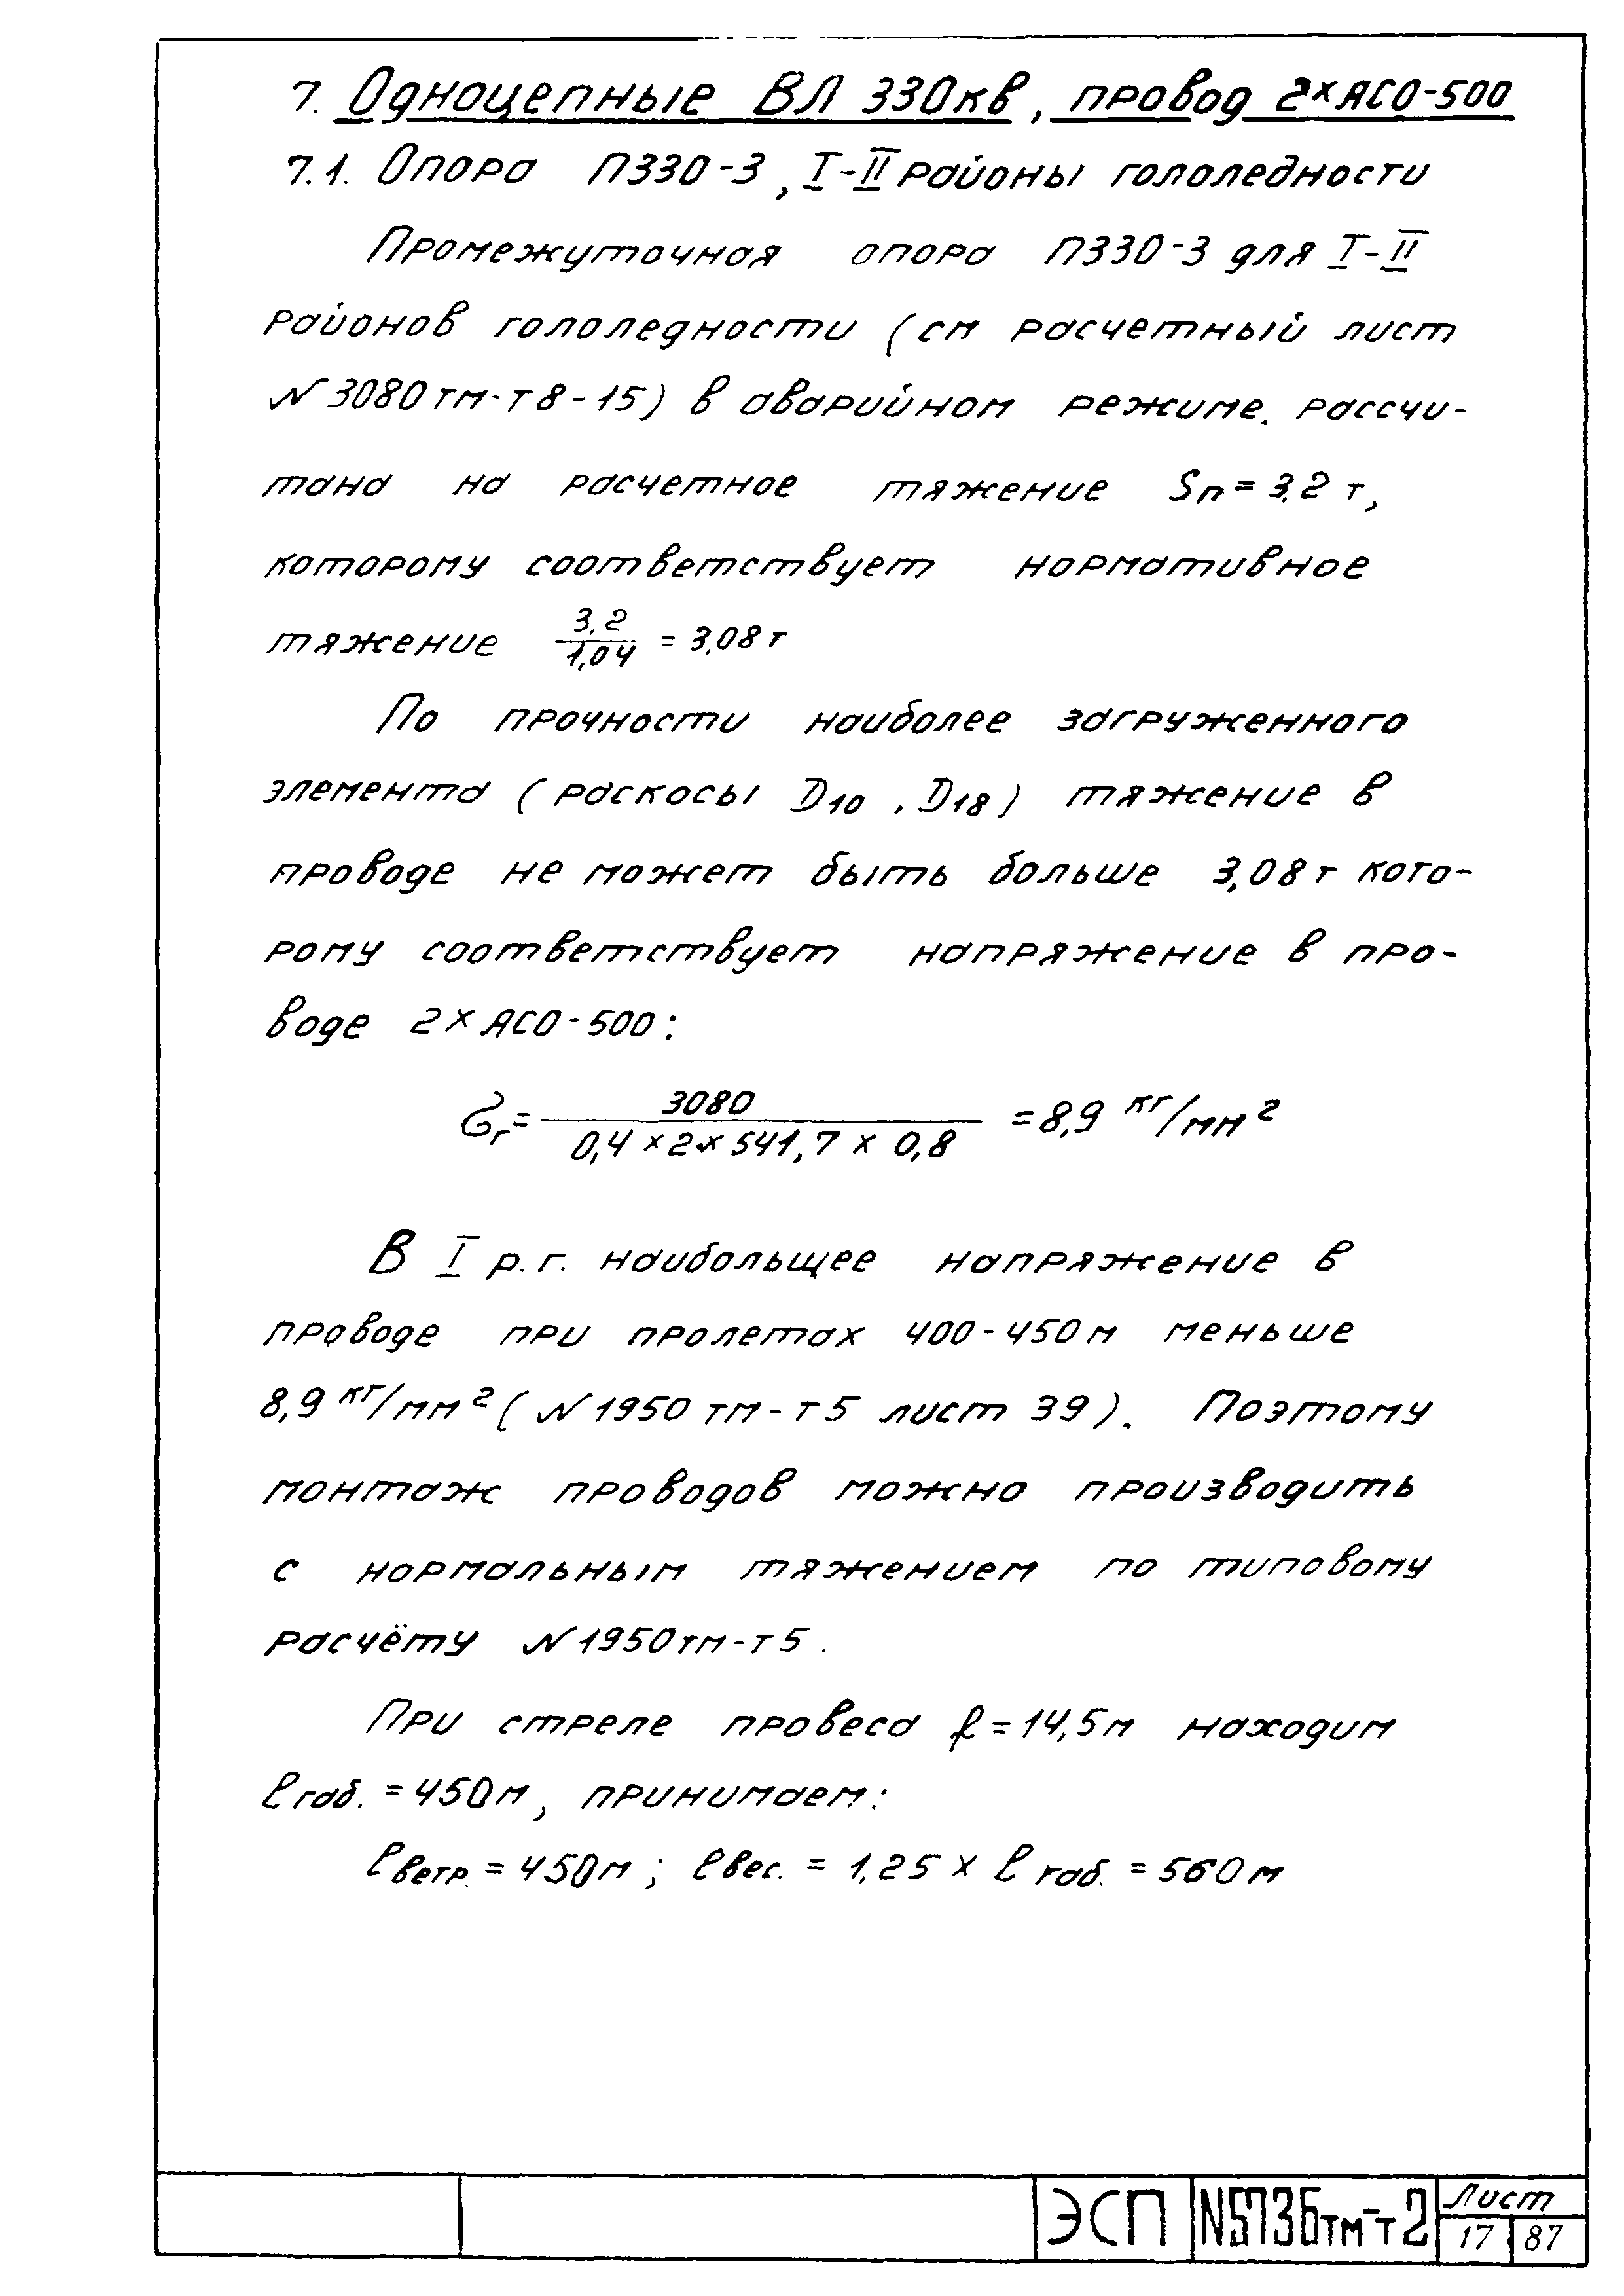 7. Одноцепные ВЛ 330кв, провод 2×АСО-500
7.1. Опора П330-3, I-II районы гололедности
Промежуточная опора П330-3 для I-II
районов гололедности (см расчетный лист
№3080тм-т8-15) в аварийном режиме. рассчи-
тана на расчетное тяжение Sп = 3,2 т,
которому соответствует нормативное
тяжение 3,2/1,04 = 3,08 т
По прочности наиболее загруженного
элемента (раскосы D10, D18) тяжение в
проводе не может быть больше 3,08 т кото-
рому соответствует напряжение в про-
воде 2×АСО-500:
σг = 3080 / (0,4 × 2 × 541,7 × 0,8) = 8,9 кг/мм²
В I р.г. наибольщее напряжение в
проводе при пролетах 400-450м меньше
8,9 кг/мм² (№1950 тм-т5 лист 39). Поэтому
монтаж проводов можно производить
с нормальным тяжением по типовому
расчёту №1950тм-т5.
При стреле провеса f = 14,5м находим
ℓгаб. = 450м, принимаем:
ℓветр. = 450м; ℓвес. = 1,25 × ℓгаб. = 560м
ЭСП N5736тм-т2 Лист
17 87